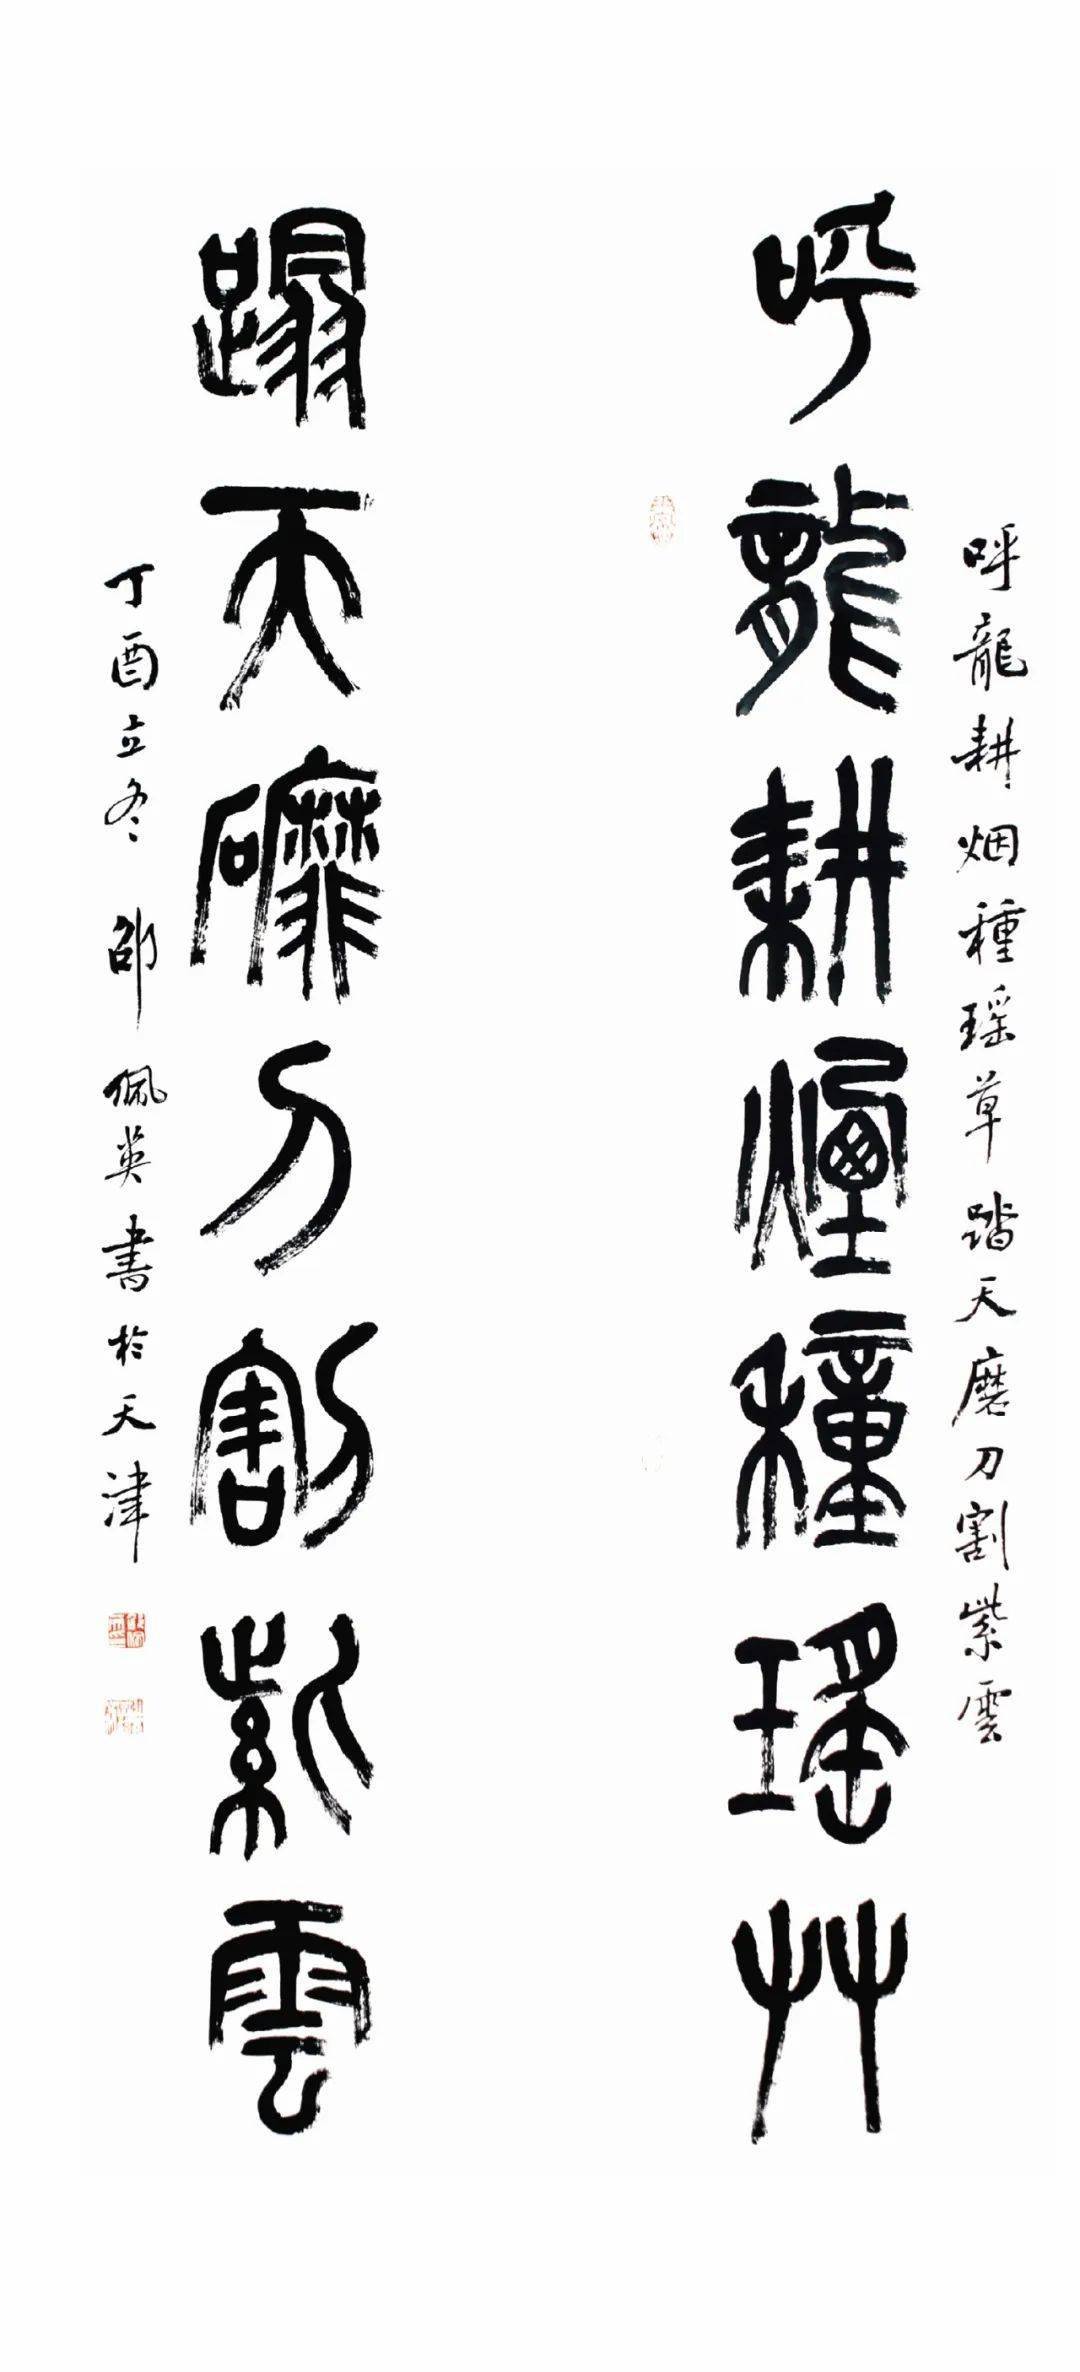 呼龍耕烟種瑶草踏天磨刀割紫雲
呼龍耕煙種瑤艸
蹋天䃺刀割紫雲
丁酉立冬邵佩英書於天津